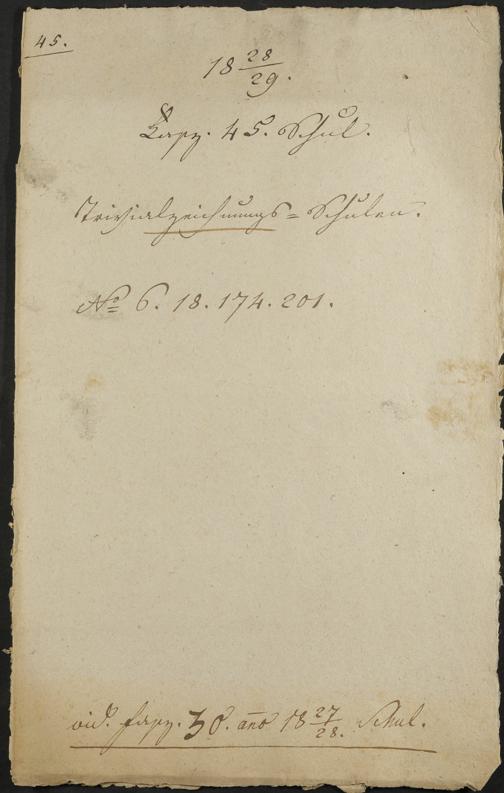 45.
18 28/29.
Fasz. 45. Schul.
Trivialzeichnungs=Schulen.
No 6. 18. 174. 201.
vid. fasz. 38. ano 18 27/28. Schul.